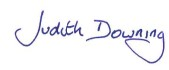 Judith Downing